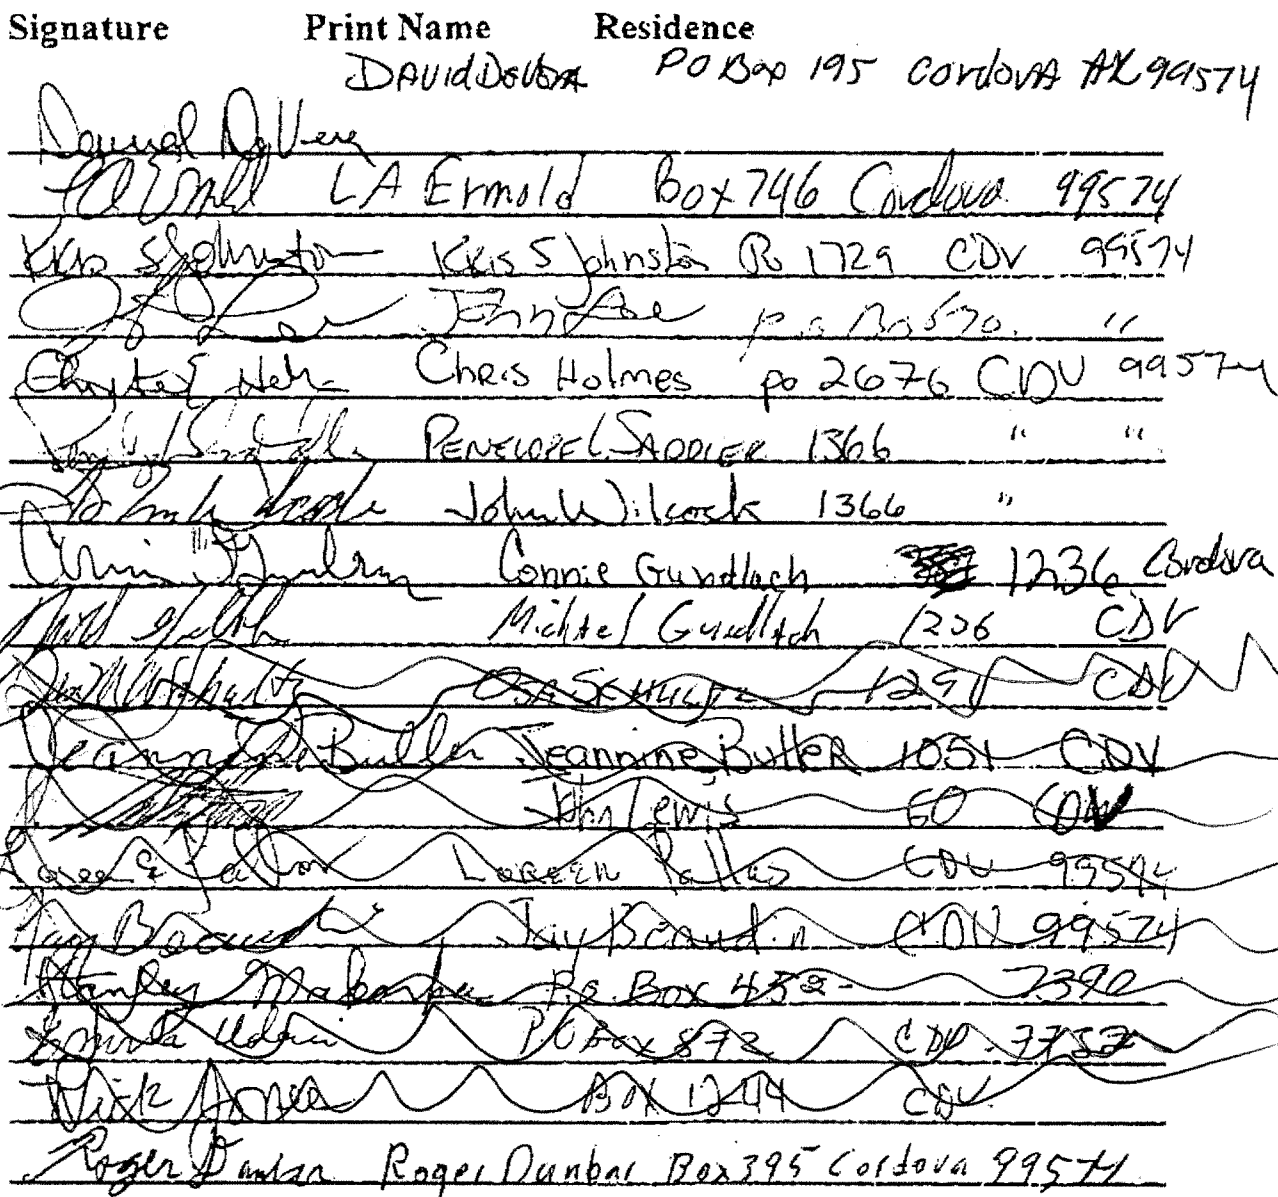 Signature Print Name Residence
DAVID PO Box 195 CordovA AK 99574
LA Ermold Box 746 Cordova 99574
Kris S Johnston Kris S Johnston Po 1729 CDV 99574
John Lee p.o. Box 570 "
Chris Holmes po 2676 CDV 99574
PENELOPE L SADDLER 1366 " "
John Wilcock 1366 "
Connie Gundlach 1236 Cordova
Michael Gundlach 1236 CDV
1291 CDV
Jeannine Butler Jeannine Butler 1051 CDV
John Lewis 60 CDV
Loreen CDV 99574
Jay Beaudin Jay Beaudin CDV 99574
Stanley P.o. Box 452 7390
PO Box 872 CDV 7737
Dick Jones Box 1244 CDV
Roger Dunbar Roger Dunbar Box 395 Cordova 99574